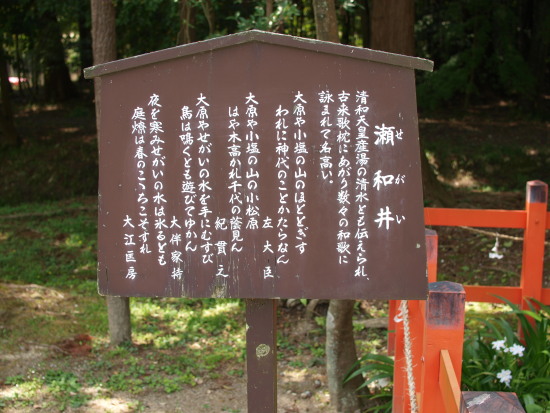 瀬和井
せがい
清和天皇産湯の清水とも伝えられ、
古来歌枕にあがり数々の和歌に
詠まれて名高い。
大原や小塩の山のほとゝぎす
われに神代のことかたらなん
左大臣
大原や小塩の山の小松原
はや木高かれ千代の蔭見ん
紀貫之
大原やせがいの水を手にむすび
鳥は鳴くとも遊びてゆかん
大伴家持
夜を寒みせがいの水は氷るとも
庭燎は春のこゝろこそすれ
大江匡房